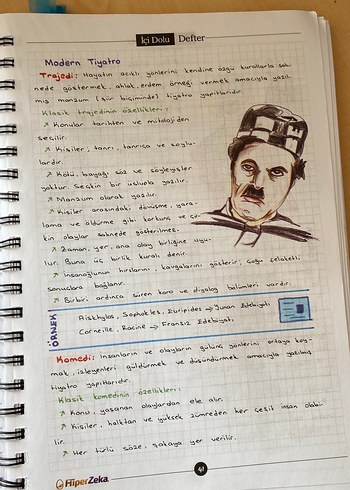 İçi Dolu Defter
Modern Tiyatro
Trajedi: Hayatın acıklı yönlerini kendine özgü kurallarla sah-
nede göstermek, ahlak, erdem örneği vermek amacıyla yazıl-
mış manzum (şiir biçiminde) tiyatro yapıtlarıdır.
Klasik trajedinin özellikleri:
Konular tarihten ve mitolojiden
seçilir.
Kişiler, tanrı, tanrıça ve soylu-
lardır.
Kötü, bayağı söz ve söyleyişler
yoktur. Seçkin bir üslupla yazılır.
Manzum olarak yazılır.
Kişiler arasındaki dövüşme, yara-
lama ve öldürme gibi korkunç ve çir-
kin olaylar sahnede gösterilmez.
Zaman, yer, ana olay birliğine uyu-
lur. Buna üç birlik kuralı denir.
İnsanoğlunun hırslarını, kavgalarını gösterir; çoğu felaketli
sonuçlara bağlanır.
Birbiri ardınca süren koro ve diyalog bölümleri vardır.
ÖRNEK
Aiskhylos, Sophokles, Euripides → Yunan Edebiyatı
Corneille, Racine → Fransız Edebiyatı
Komedi: İnsanların ve olayların gülünç yönlerini ortaya koy-
mak, izleyenleri güldürmek ve düşündürmek amacıyla yazılmış
tiyatro yapıtlarıdır.
Klasik komedinin özellikleri:
Konu, yaşanan olaylardan ele alır.
Kişiler, halktan ve yüksek zümreden her çeşit insan olabi-
lir.
Her türlü söze, şakaya yer verilir.
41
HiperZeka